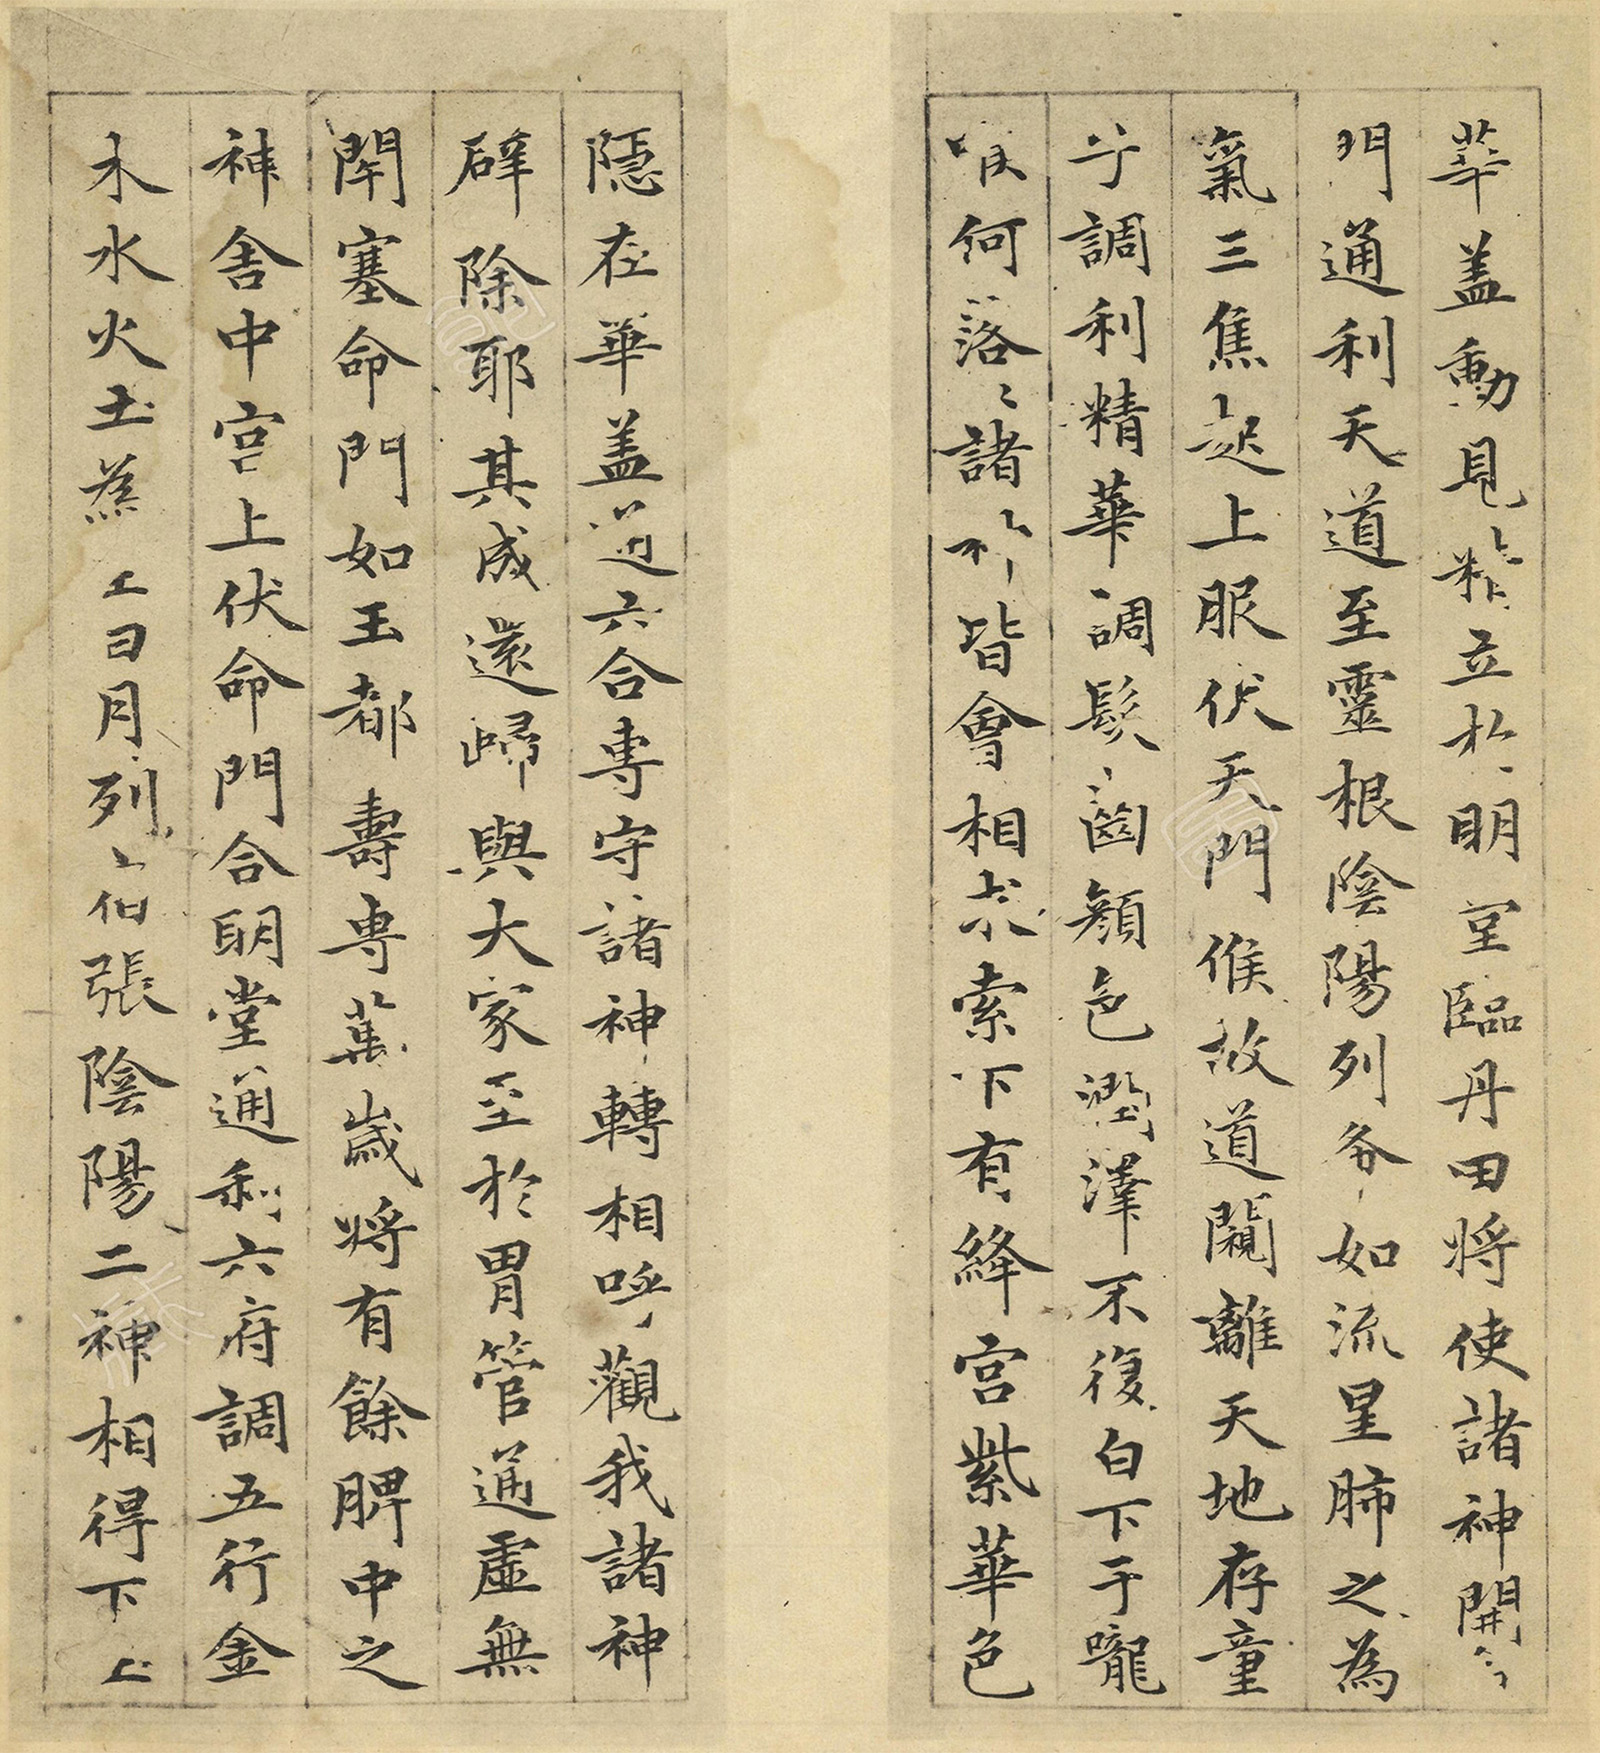 華蓋動見精立於明堂臨丹田將使諸神開命
門通利天道至靈根陰陽列布如流星肺之為
氣三焦起上服伏天門候故道闚離天地存童
子調利精華調髮齒顏色潤澤不復白下于嚨
喉何落落諸神皆會相求索下有絳宮紫華色
隱在華蓋通六合專守諸神轉相呼觀我諸神
辟除耶其成還歸與大家至於胃管通虛無
閉塞命門如玉都壽專萬歲將有餘脾中之
神舍中宮上伏命門合明堂通利六府調五行金
木水火土為王日月列宿張陰陽二神相得下上